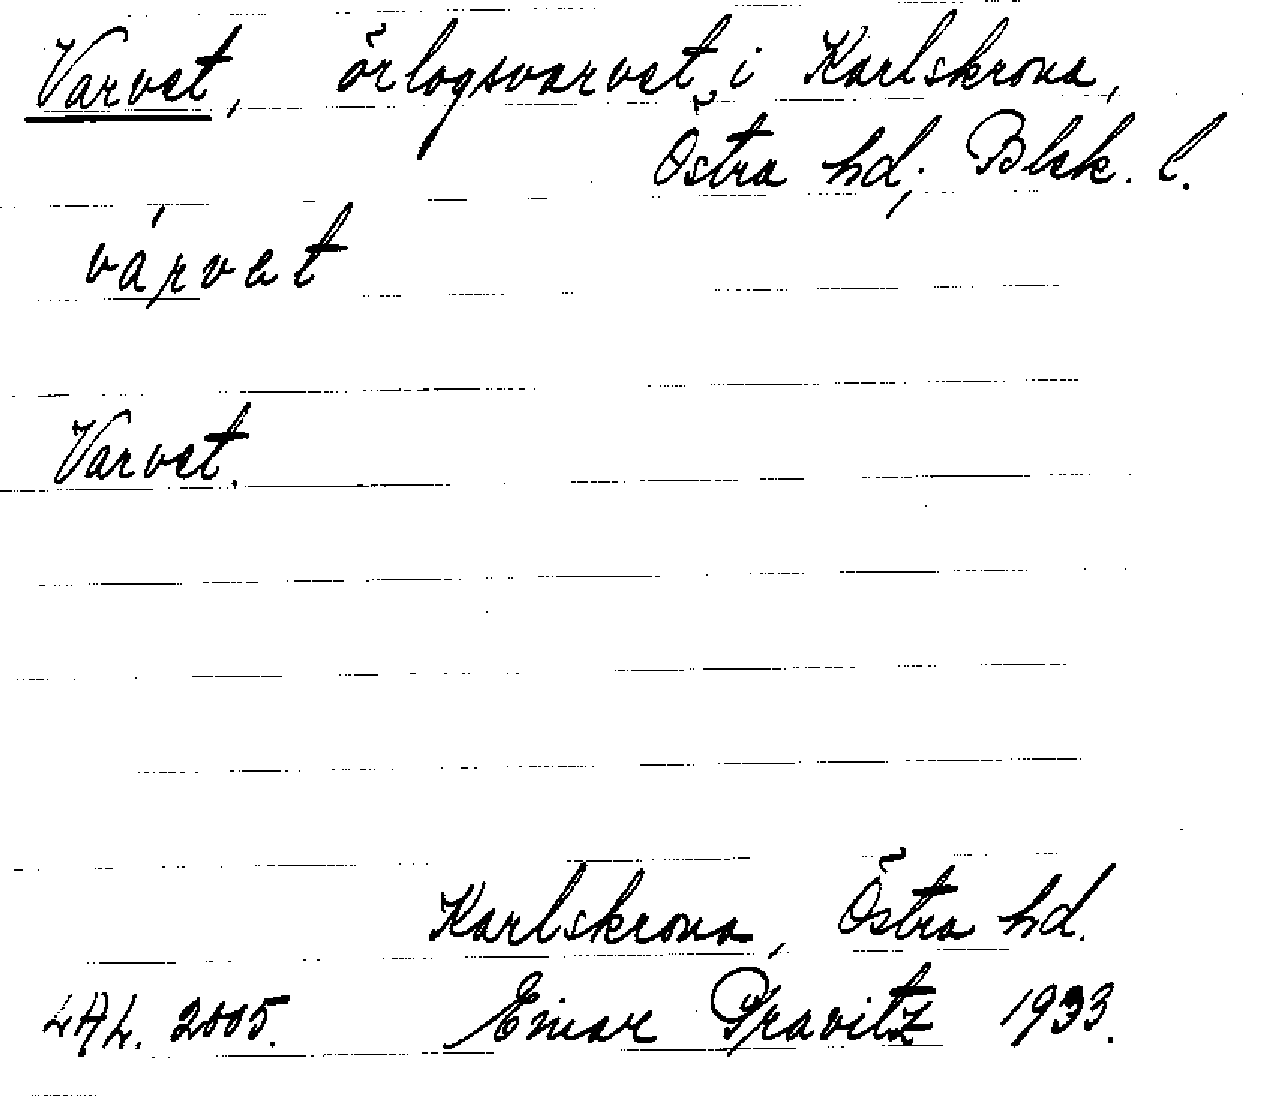 Varvet, örlogsvarvet i Karlskrona,
Östra hd; Blek. l.
várvat
Varvet.
Karlskrona, Östra hd.
LAL. 2005. Einar Pravitz 1933.